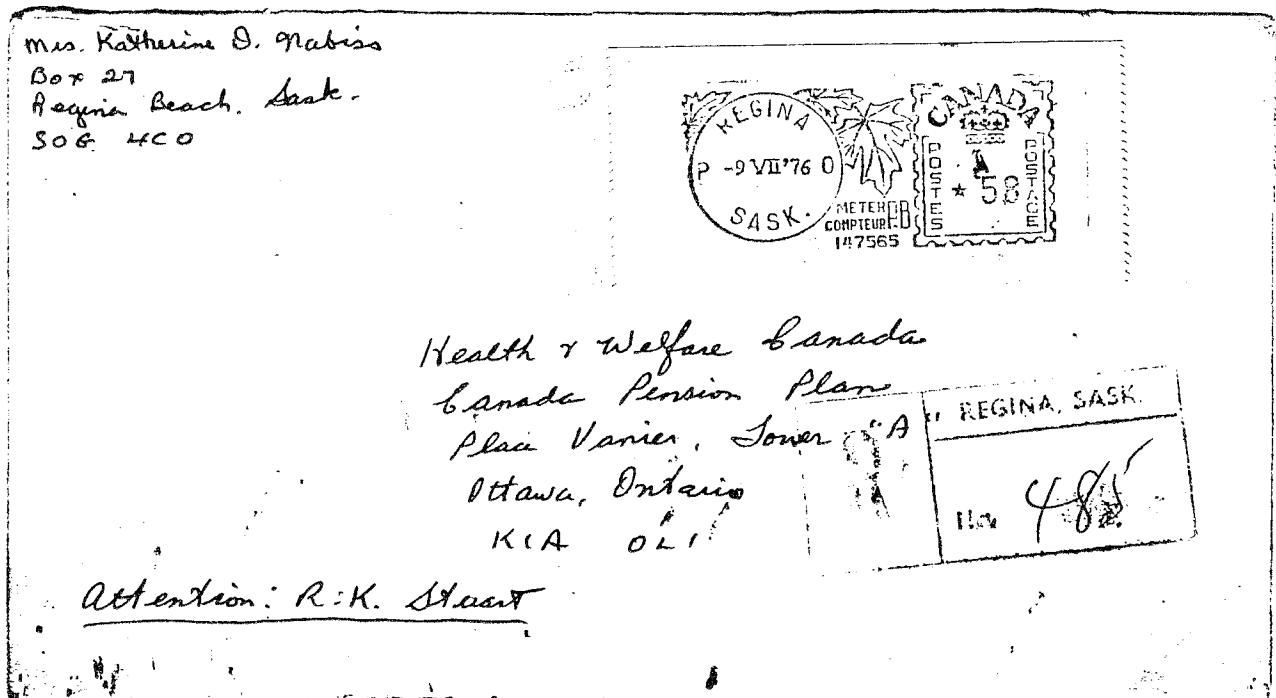 Mrs. Katherine D. Nabiss
Box 27
Regina Beach, Sask.
S0G 4C0
REGINA
P -9 VII '76 0
SASK.
METER PB
COMPTEUR
147565
CANADA
POSTES
* 58
POSTAGE
Health & Welfare Canada
Canada Pension Plan
Place Vanier, Tower "A"
Ottawa, Ontario
K1A 0L1
REGINA, SASK.
No. 485
Attention: R.K. Stuart